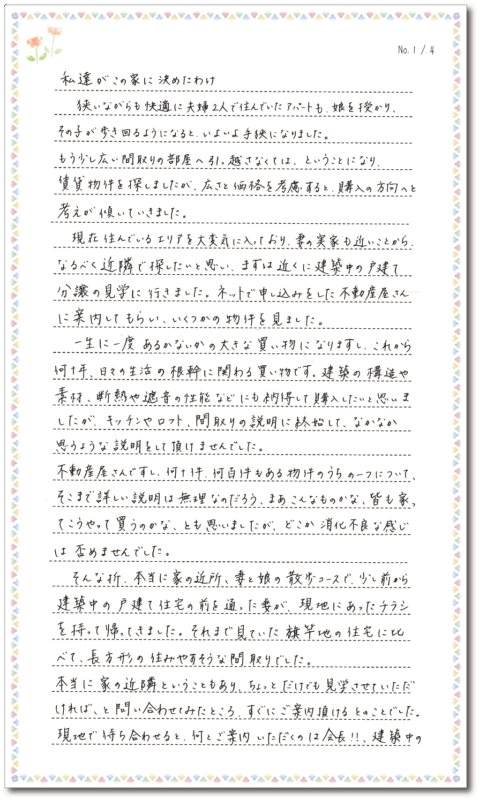 No. 1 / 4
私達がこの家に決めたわけ
狭いながらも快適に夫婦2人で住んでいたアパートも、娘を授かり、
その子が歩き回るようになると、いよいよ手狭になりました。
もう少し広い間取りの部屋へ引っ越さなくては、ということになり、
賃貸物件を探しましたが、広さと価格を考慮すると、購入の方向へと
考えが傾いていきました。
現在住んでいるエリアを大変気に入っており、妻の実家も近いことから、
なるべく近隣で探したいと思い、まずは近くに建築中の戸建て
分譲の見学に行きました。ネットで申し込みをした不動産屋さん
に案内してもらい、いくつかの物件を見ました。
一生に一度あるかないかの大きな買い物になりますし、これから
何十年、日々の生活の根幹に関わる買い物です。建築の構造や
素材、断熱や遮音の性能などにも納得して購入したいと思いま
したが、キッチンやロフト、間取りの説明に終始して、なかなか
思うような説明をして頂けませんでした。
不動産屋さんですし、何十件、何百件もある物件のうちの一つについて、
そこまで詳しい説明は無理なのだろう、まあこんなものかな、皆も家っ
てこうやって買うのかな、とも思いましたが、どこか消化不良な感じ
は否めませんでした。
そんな折、本当に家の近所、妻と娘の散歩コースで、少し前から
建築中の戸建て住宅の前を通った妻が、現地にあったチラシ
を持って帰ってきました。それまで見ていた旗竿地の住宅に比
べて、長方形の住みやすそうな間取りでした。
本当に家の近隣ということもあり、ちょっとだけでも見学させていただ
ければ、と問い合わせてみたところ、すぐにご案内頂けるとのことでした。
現地で待ち合わせると、何とご案内いただくのは会長!!、建築中の